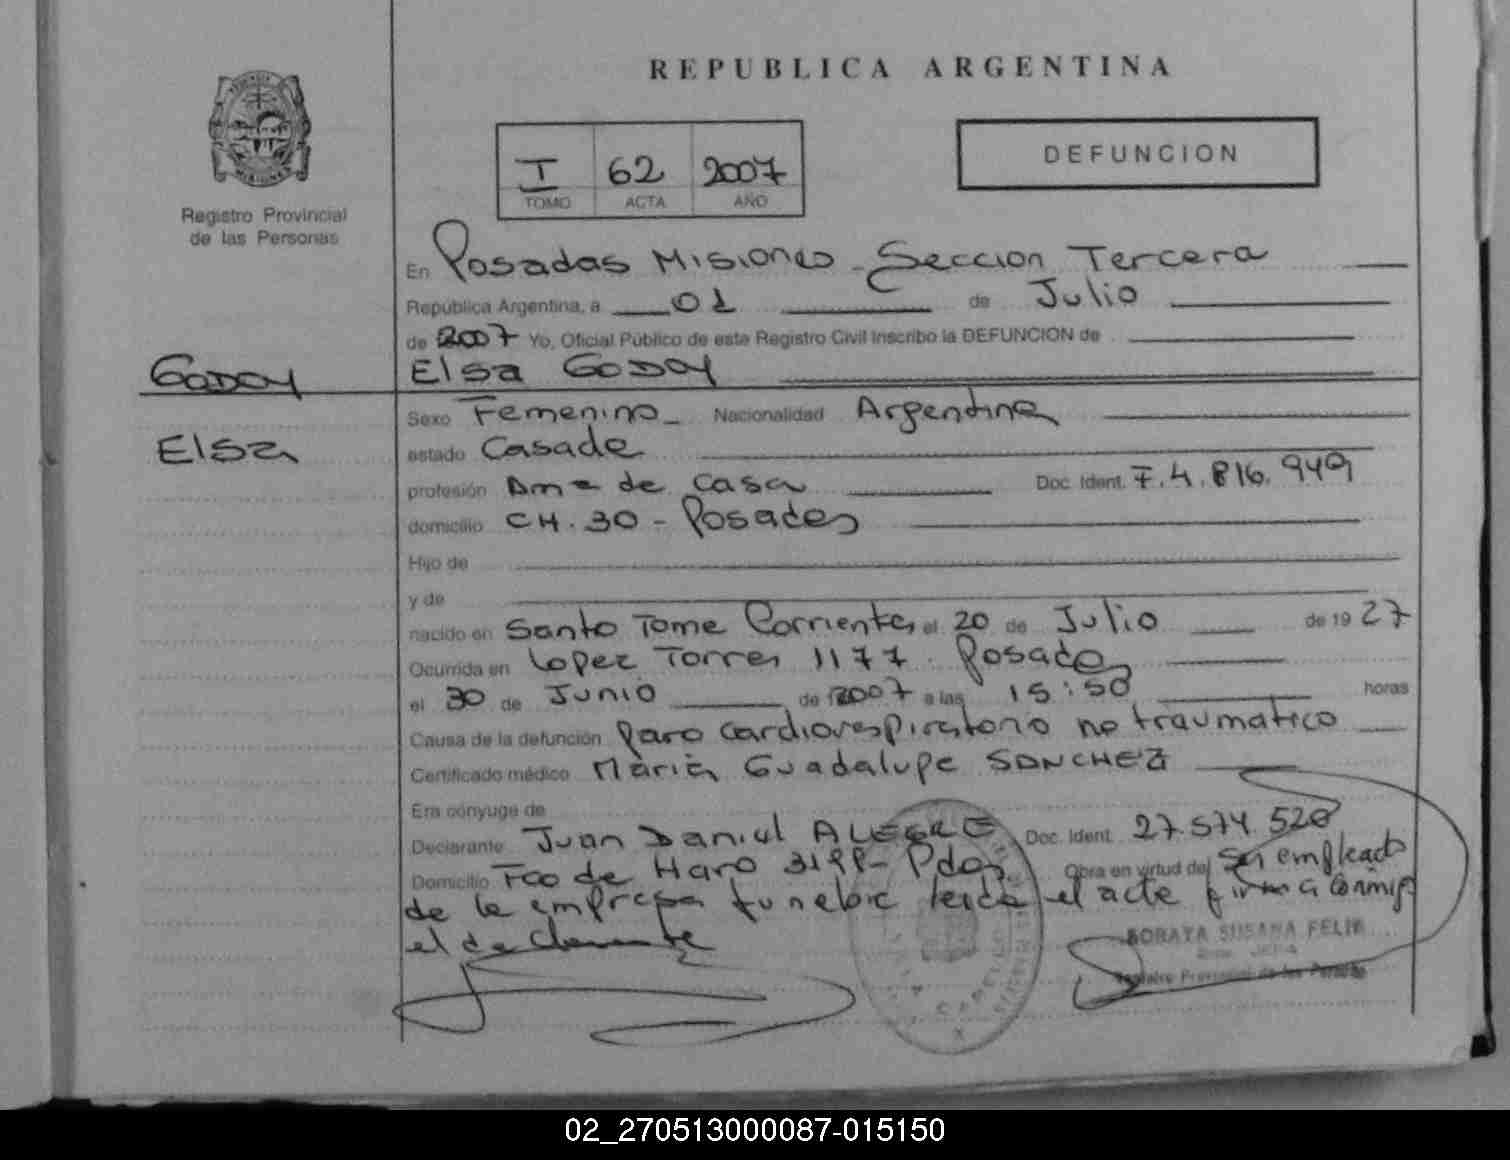 REPUBLICA ARGENTINA
DEFUNCION
I 62 2007
TOMO ACTA AÑO
Registro Provincial
de las Personas
En Posadas Misiones - Seccion Tercera
República Argentina, a 01 de Julio
de 2007 Yo, Oficial Público de este Registro Civil Inscribo la DEFUNCION de
GODOY
Elsa GODOY
Sexo Femenino - Nacionalidad Argentina
Elsa
estado Casada
profesión Ama de Casa Doc. Ident. F. 4.816.949
domicilio CH. 30 - Posadas
Hijo de
y de
nacido en Santo Tome Corrientes el 20 de Julio de 1927
Ocurrida en Lopez Torres 1177 - Posadas
el 30 de Junio de 2007 a las 15:50 horas
Causa de la defunción Paro cardiorespiratorio no traumatico
Certificado médico Maria Guadalupe SANCHEZ
Era cónyuge de
Declarante Juan Daniel ALEGRE Doc. Ident. 27.574.528
Domicilio Fco de Haro 3198 - Pdas Obra en virtud del Ser empleado
de la empresa funebre leida el acta firma conmigo
el declarante
SORAYA SUSANA FELIP
JEFA
Registro Provincial de las Personas
02_270513000087-015150